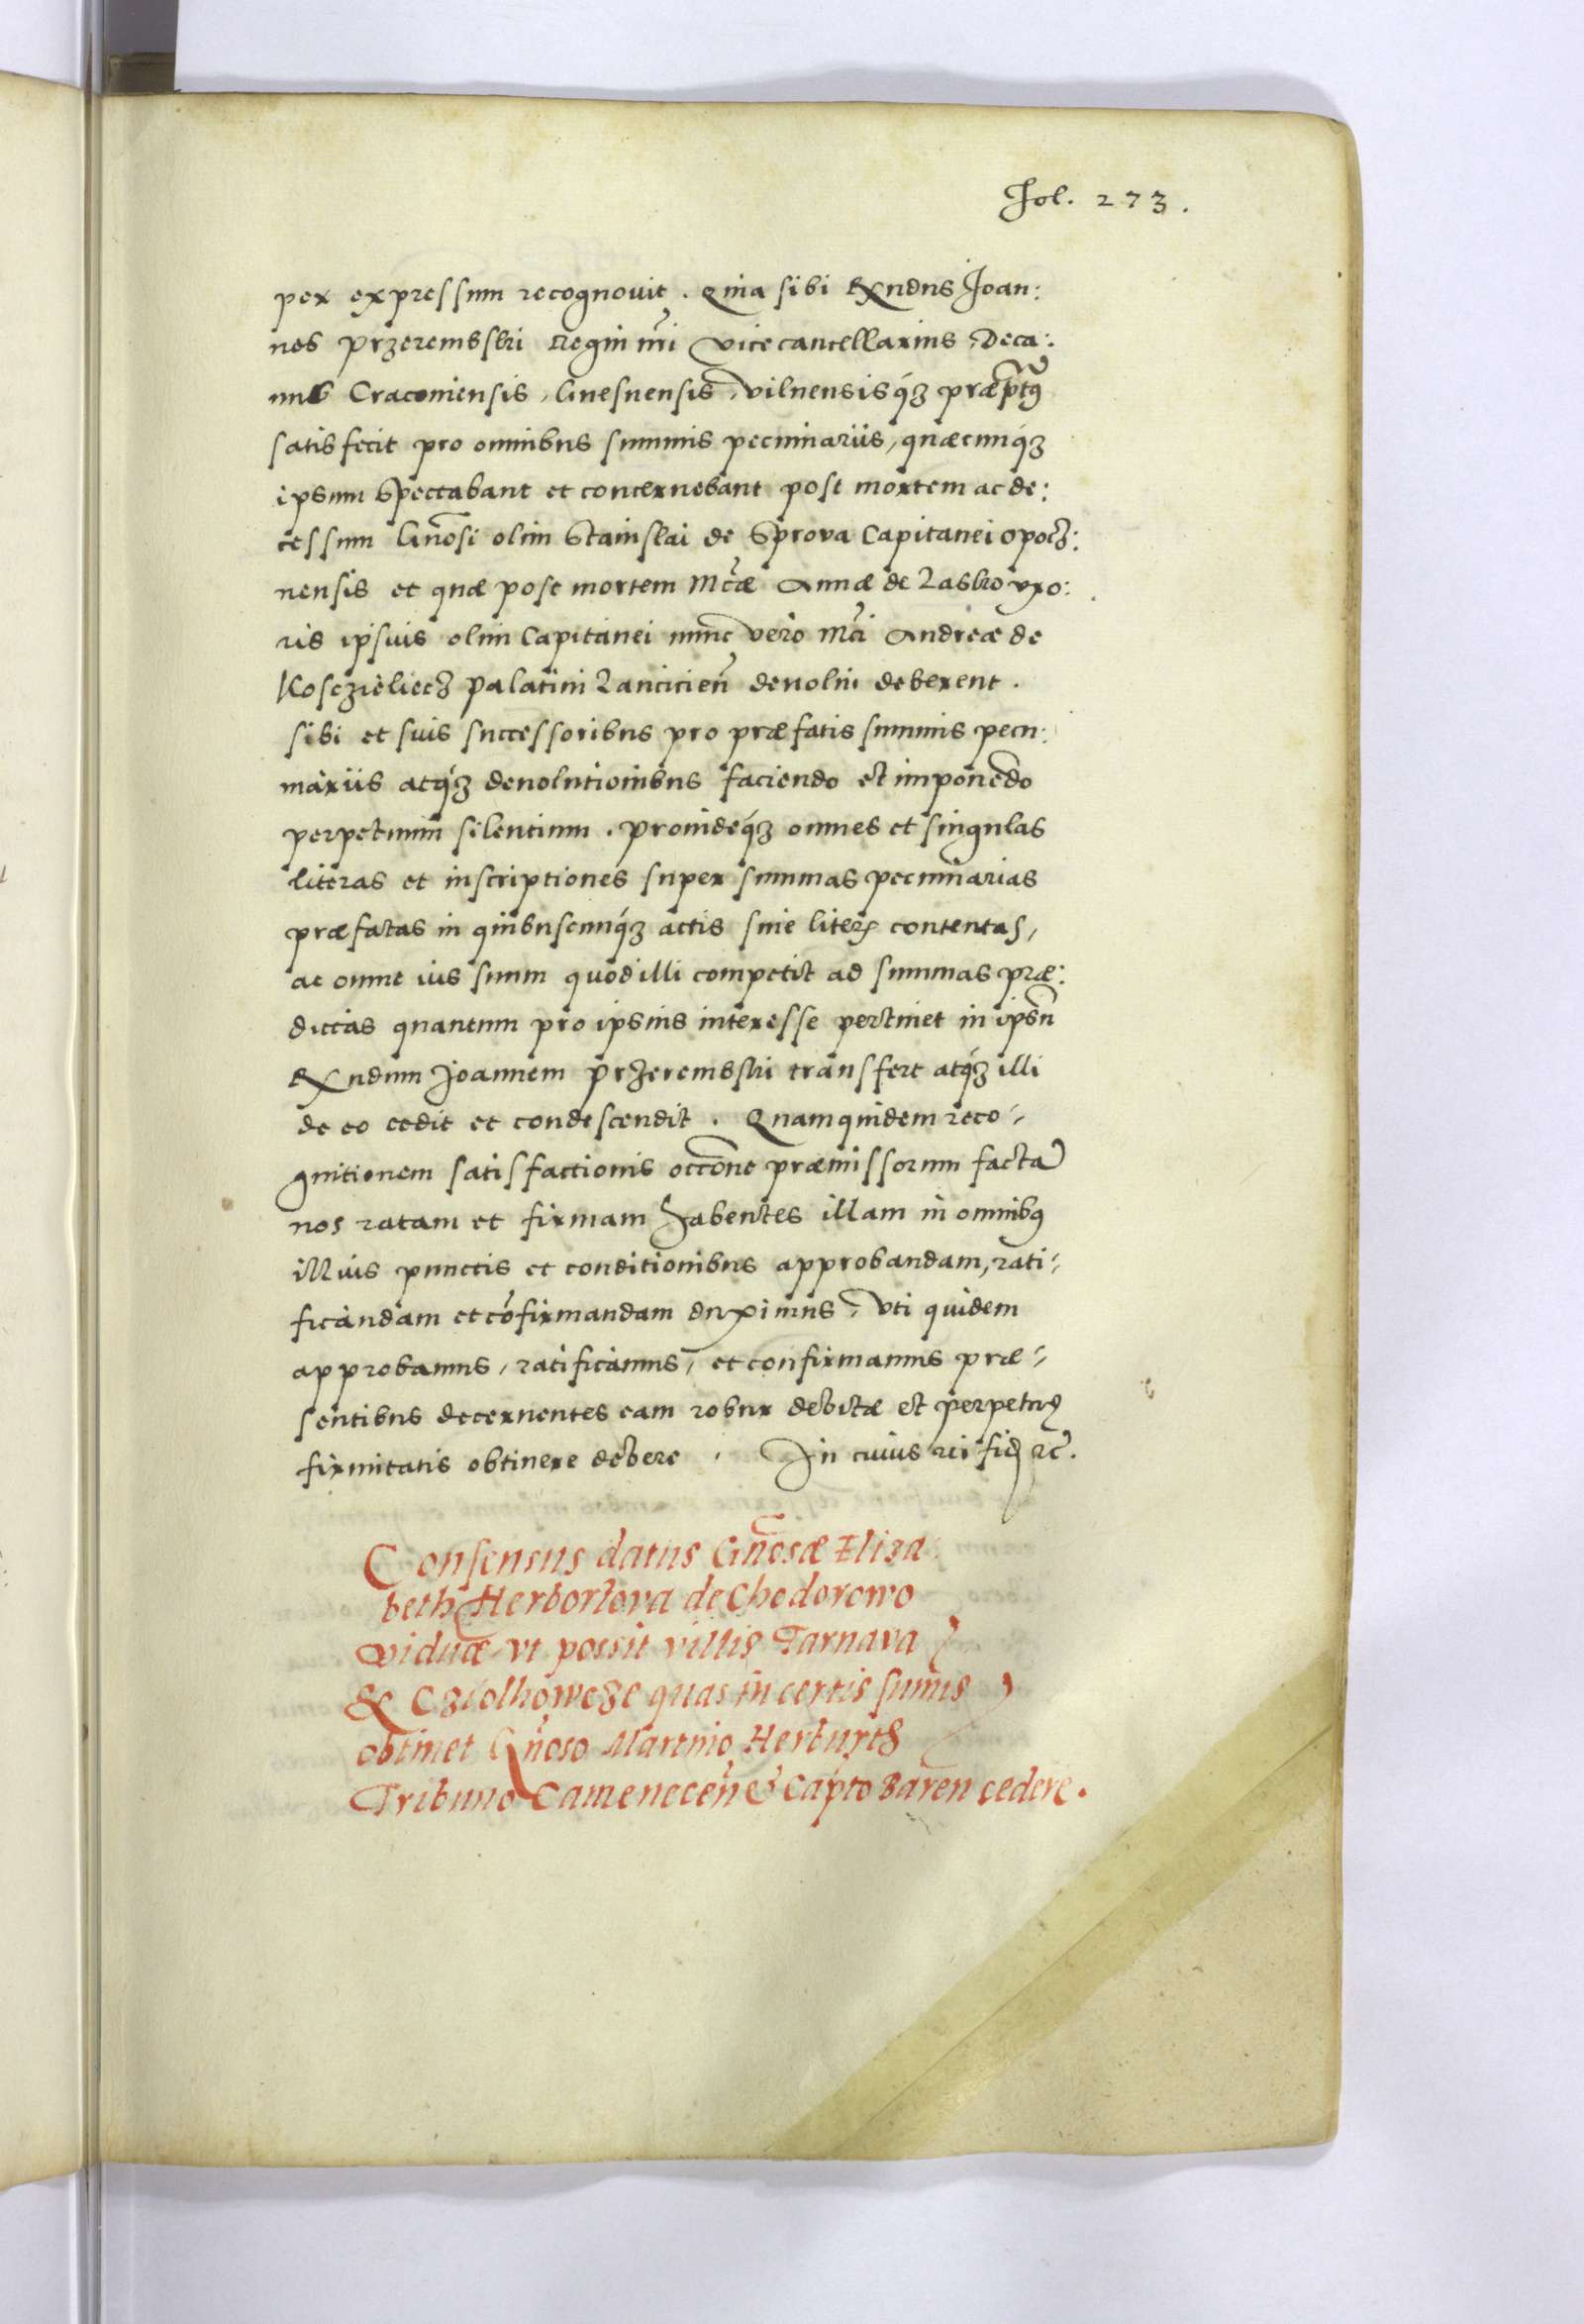 Fol. 273.
per expressum recognouit. Quia sibi Rx̄ndus Joan:
nes Przerembski Regni nr̄i Vicecancellarius, Deca:
nus Cracouiensis, Gnesnensis, Vilnensisq́3 præp̄tꝰ
satisfecit pro omnibus summis pecuniariis, quæcunq́3
ipsum spectabant et concernebant post mortem ac de:
cessum Gn̄osi olim Stanislai de Sprova Capitanei Opocz:
nensis et quæ post mortem Mc̄æ Annæ de Lasko vxo:
ris ipsius olim Capitanei nunc vero Mc̄i Andreæ de
Kosczieliecz Palatini Lancicien̄ deuolui deberent.
sibi et suis successoribus pro præfatis summis pecu:
niariis atq́3 deuolutionibus faciendo et imponēdo
perpetuum silentium. proindeq́3 omnes et singulas
literas et inscriptiones super summas pecuniarias
præfatas in quibuscunq́3 actis siue literis contentas,
ac omne ius suum quod illi competit ad summas præ:
dictas quantum pro ipsius interesse pertinet in ipsū
Rx̄ndum Joannem Przerembski transfert atq́3 illi
de eo cedit et condescendit. Quamquidem reco-
gnitionem satisfactionis occōne præmissorum factā
nos ratam et firmam habentes illam in omnibꝰ
illius punctis et conditionibus approbandam, rati-
ficandam et cōfirmandam duximus, vti quidem
approbamus, ratificamus, et confirmamus præ-
sentibus decernentes eam robur debitæ et perpetuę
firmitatis obtinere debere. In cuius rei fid̄ rc̄.
Consensus datus Gn̄osæ Eliza
beth Herbortova de Chodorowo
viduæ vt possit villis Tarnava
& Cziolhowcze quas in certis sum̄is
obtinet Gn̄oso Martino Herburth
Tribuno Camenecen̄ & Cap̄to Baren cedere.